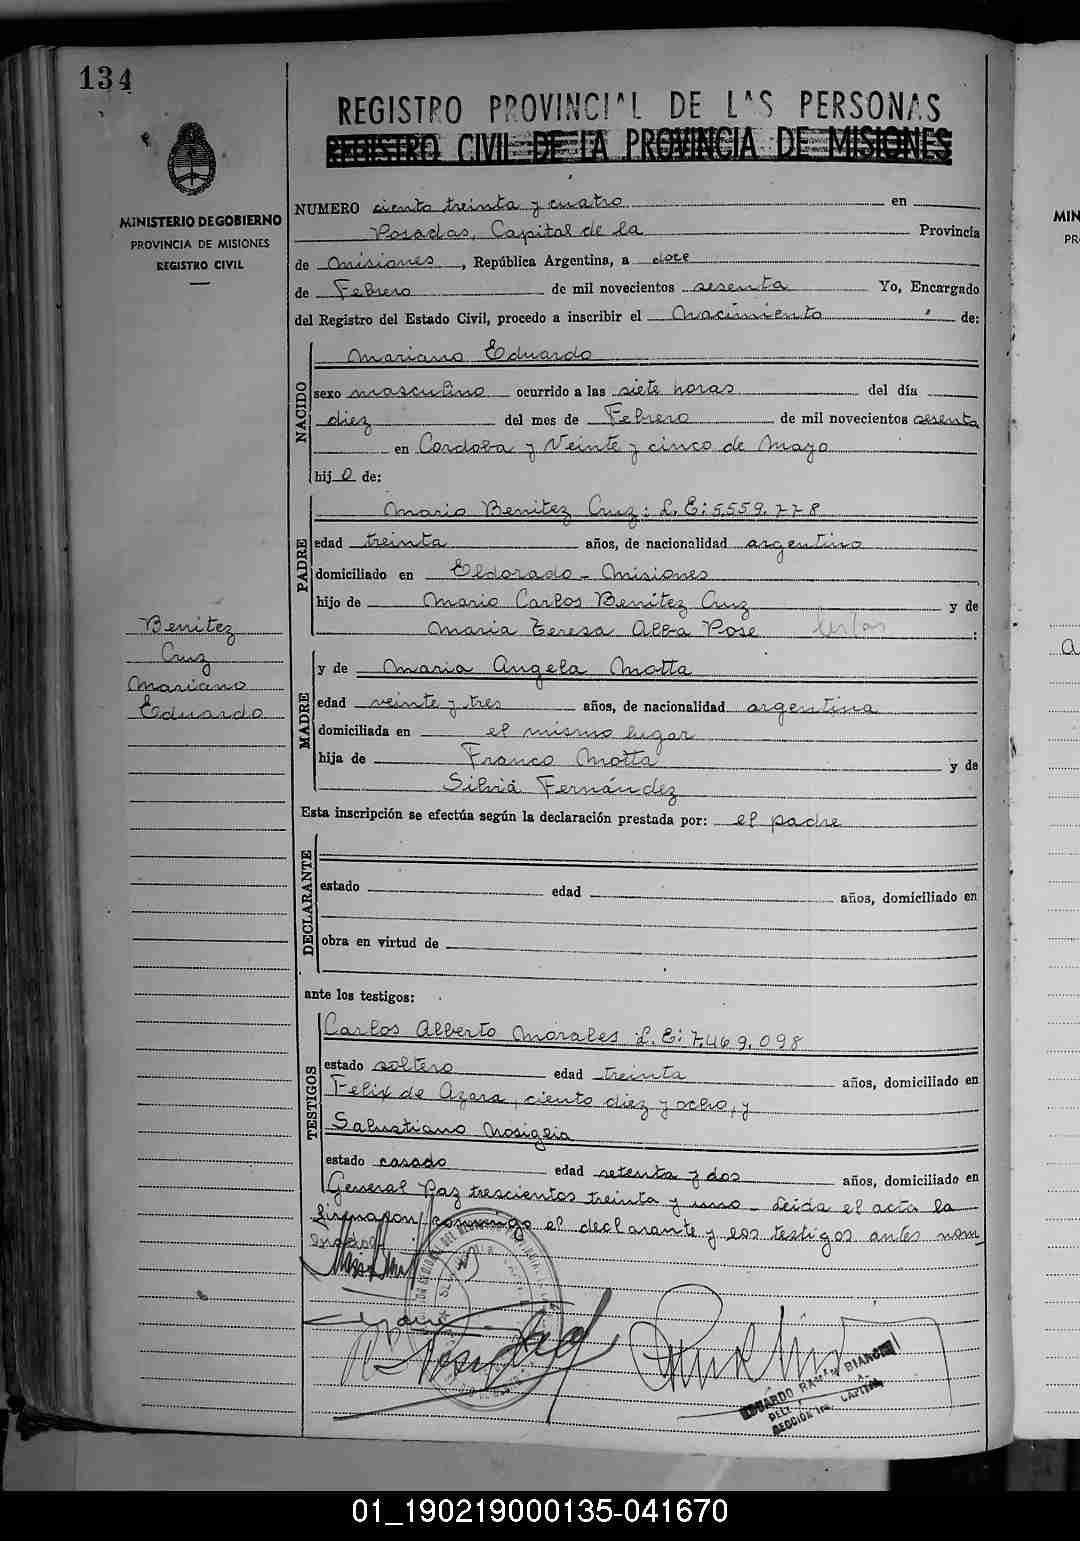 134
REGISTRO PROVINCIAL DE LAS PERSONAS
REGISTRO CIVIL DE LA PROVINCIA DE MISIONES
MINISTERIO DE GOBIERNO
PROVINCIA DE MISIONES
REGISTRO CIVIL
NUMERO ciento treinta y cuatro en
Posadas, Capital de la Provincia
de Misiones, República Argentina, a doce
de Febrero de mil novecientos sesenta Yo, Encargado
del Registro del Estado Civil, procedo a inscribir el Nacimiento de:
NACIDO
Mariano Eduardo
sexo masculino ocurrido a las siete horas del día
diez del mes de Febrero de mil novecientos sesenta
en Cordoba y Veinte y cinco de Mayo
hijo de:
PADRE
Mario Benitez Cruz: L.E: 5.559.778
edad treinta años, de nacionalidad argentino
domiciliado en Eldorado - Misiones
hijo de Mario Carlos Benitez Cruz y de
Maria Teresa Alba Pose :
Benitez
Cruz
Mariano
Eduardo
MADRE
y de Maria Angela Motta
edad veinte y tres años, de nacionalidad argentina
domiciliada en el mismo lugar
hija de Franco Motta y de
Silvia Fernández
Esta inscripción se efectúa según la declaración prestada por: el padre
DECLARANTE
estado edad años, domiciliado en
obra en virtud de
ante los testigos:
TESTIGOS
Carlos Alberto Morales L.E: 7.469.098
estado soltero edad treinta años, domiciliado en
Felix de Azara, ciento diez y ocho, y
Salustiano Nosiglia
estado casado edad setenta y dos años, domiciliado en
General Paz trescientos treinta y uno - Leida el acta la
firmaron conmigo el declarante y los testigos antes nom
brados
EDUARDO RAMON BIANCHI
SECCION 1ra. CAPITAL
MIN
PR
01_190219000135-041670